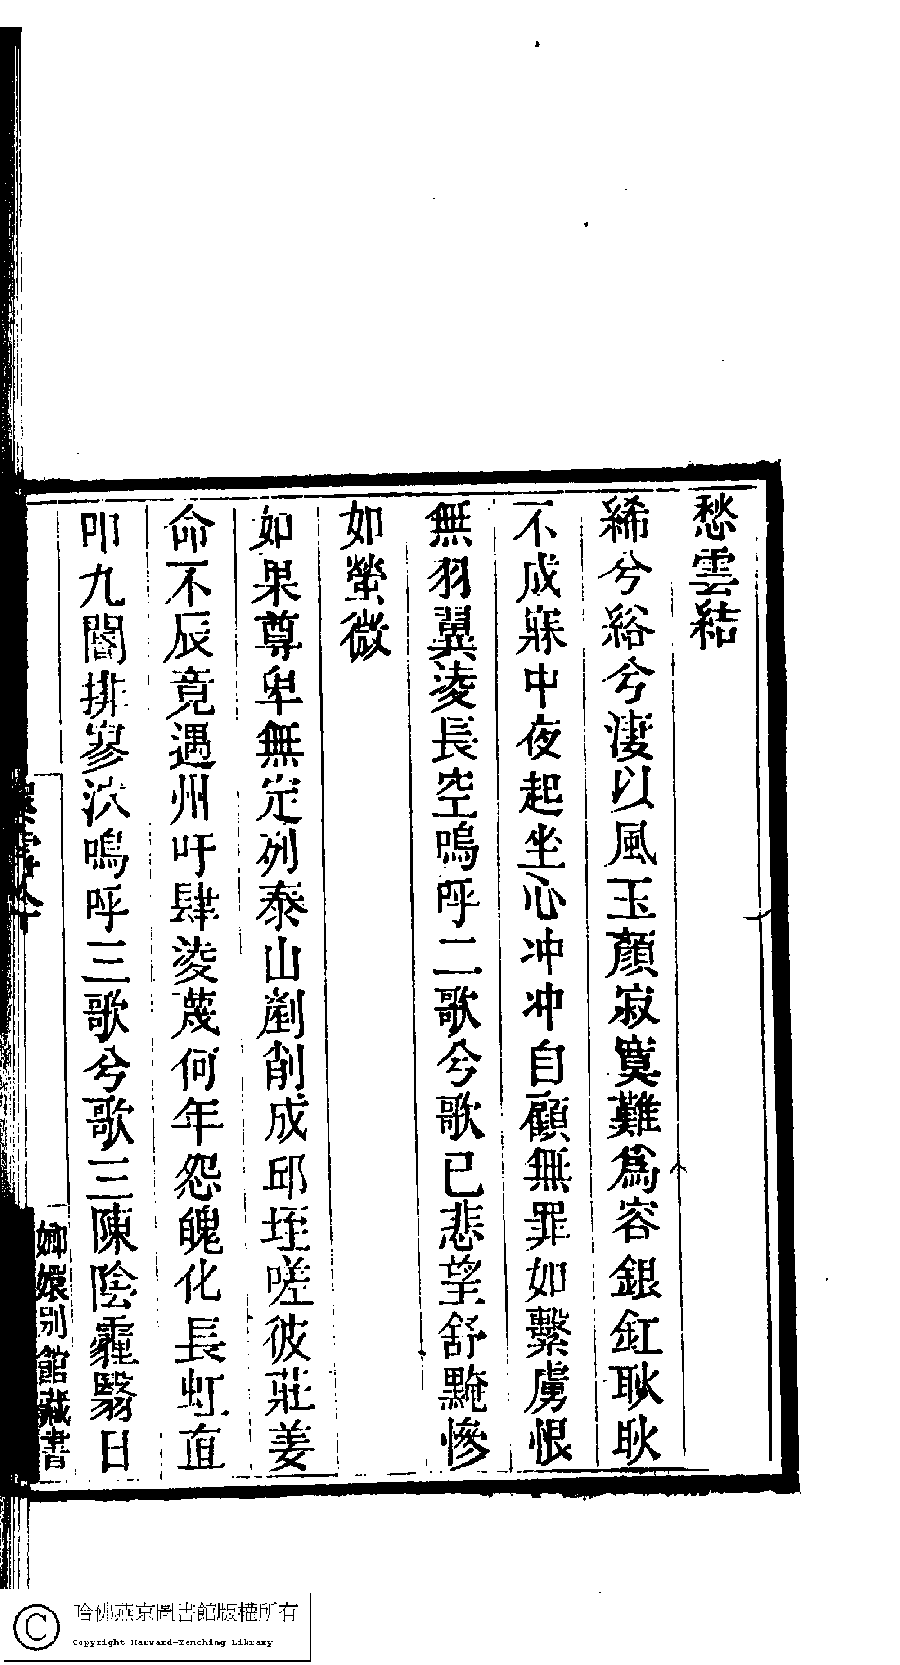 愁雲結
絺兮綌兮淒以風玉顏寂寞難爲容銀釭耿耿
不成寐中夜起坐心冲冲自顧無罪如繫虜恨
無羽翼淩長空嗚呼二歌兮歌已悲望舒黤慘
如螢微
如果尊卑無定列泰山剷削成邱垤嗟彼莊姜
命不辰竟遇州吁肆淩蔑何年怨魄化長虹直
叩九閽排寥泬嗚呼三歌兮歌三陳陰霾翳日
嫏嬛別館藏書
哈佛燕京圖書館版權所有
Copyright Harvard-Yenching Library